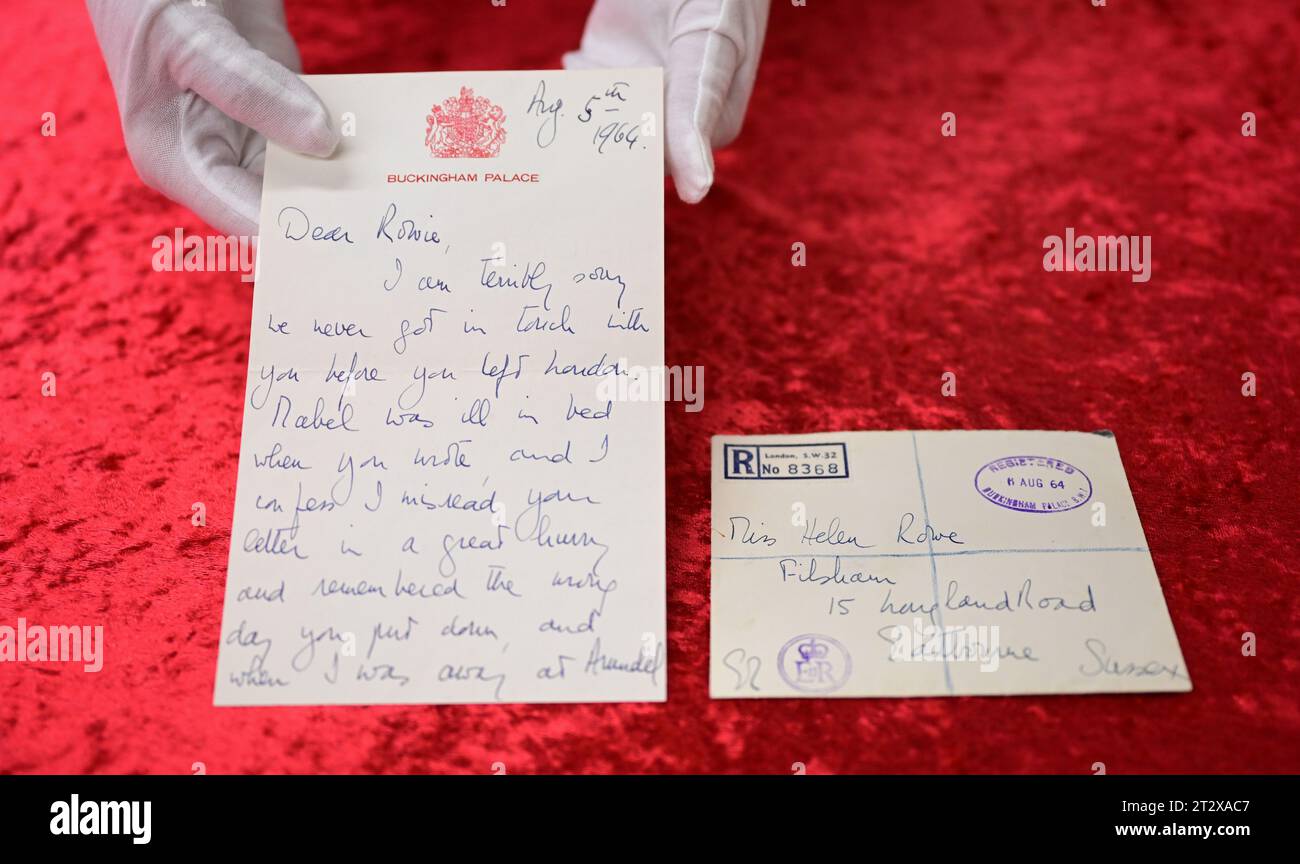 Aug. 5th
1964.
BUCKINGHAM PALACE
Dear Rowie,
I am terribly sorry
we never got in touch with
you before you left London.
Mabel was ill in bed
when you wrote and I
confess I misread your
letter in a great hurry
and remembered the wrong
day you put down, and
when I was away at Arundel
R
London, S.W.32
No 8368
REGISTERED
AUG 64
BUCKINGHAM PALACE S.W.1
Miss Helen Rowe
Filsham
15 Langland Road
Eastbourne
Sussex
EIIR
alamy
Image ID: 2T2XAC7
www.alamy.com